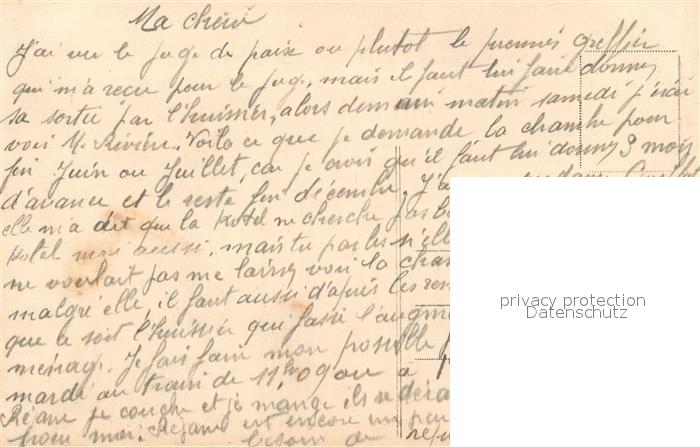 Ma chérie
J'ai vu le juge de paix ou plutot le premier greffier
qui m'a reçu pour le juge, mais il faut lui faire donner
sa sortie par l'huissier, alors demain matin samedi j'irai
voir M. Rivière. Voila ce que je demande la chambre pour
fin Juin ou Juillet, car je crois qu'il faut lui donner 3 mois
d'avance et le reste fin décembre. J'a
elle m'a dit que la Kotel ne cherche pas
Kotel moi aussi, mais tu parles
ne voulait pas me laisser voir la cha
malgré elle, il faut aussi d'après les
que ce soit l'huissier qui fasse l'augm
ménag. Je fais faire mon possible
mardi au train de 11h09 ou a
Réjane je couche et je mange ils se déra
pour moi. Réjane est encore un peu
besoin de
privacy protection
Datenschutz